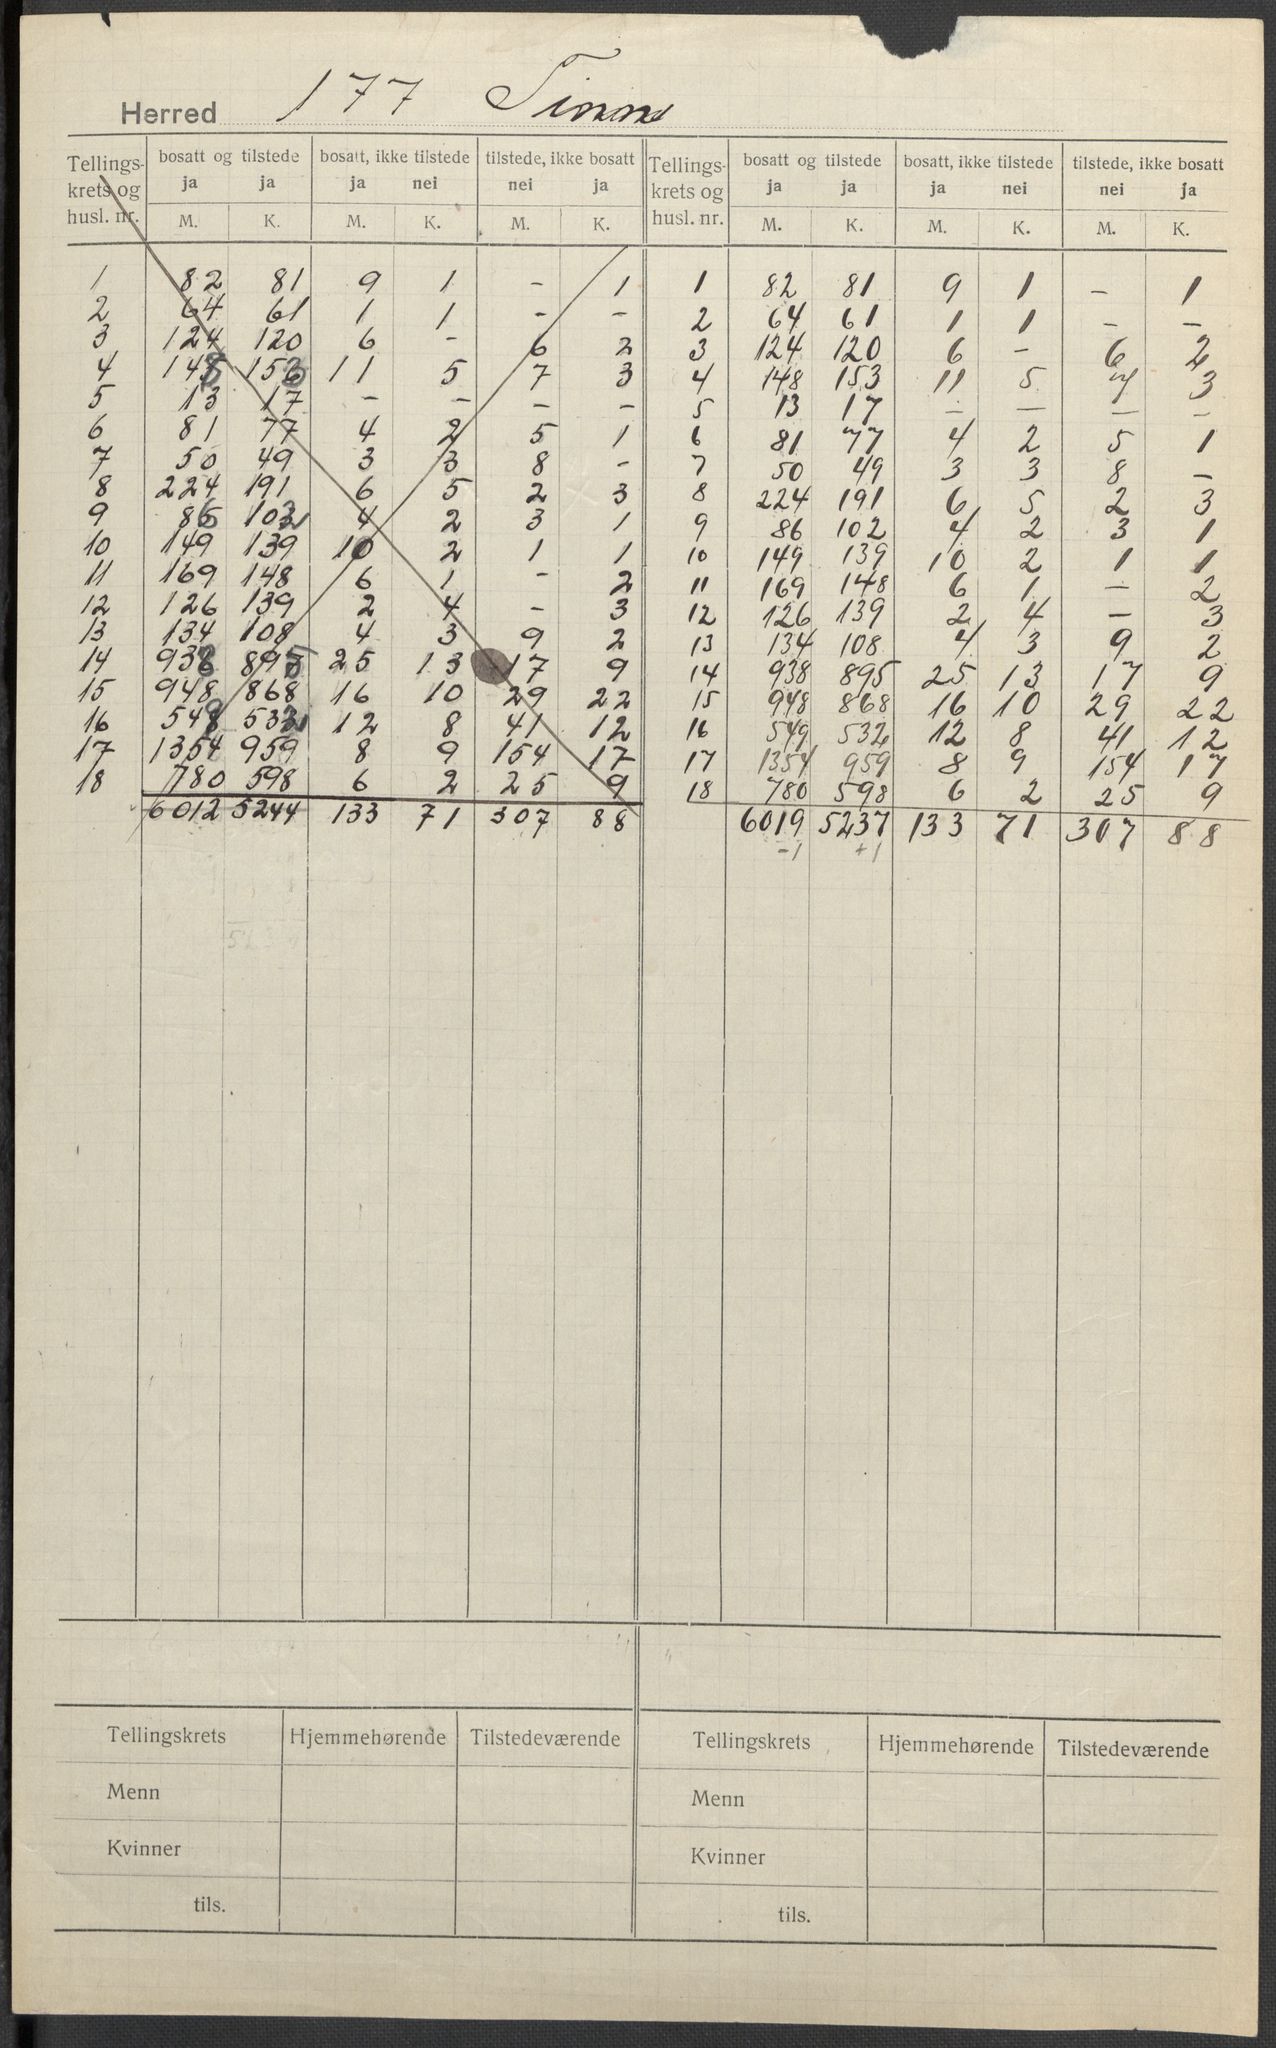 Herred 177 Tinn
Tellings- krets og husl. nr. | bosatt og tilstede ja ja | bosatt, ikke tilstede ja nei | tilstede, ikke bosatt nei ja | Tellings- krets og husl. nr. | bosatt og tilstede ja ja | bosatt, ikke tilstede ja nei | tilstede, ikke bosatt nei ja
M. K. M. K. M. K. M. K. M. K. M. K.
1 82 81 9 1 - 1 1 82 81 9 1 - 1
2 64 61 1 1 - - 2 64 61 1 1 - -
3 124 120 6 - 6 2 3 124 120 6 - 6 2
4 148 153 11 5 7 3 4 148 153 11 5 7 3
5 13 17 - - - - 5 13 17 - - - -
6 81 77 4 2 5 1 6 81 77 4 2 5 1
7 50 49 3 3 8 - 7 50 49 3 3 8 -
8 224 191 6 5 2 3 8 224 191 6 5 2 3
9 86 102 4 2 3 1 9 86 102 4 2 3 1
10 149 139 10 2 1 1 10 149 139 10 2 1 1
11 169 148 6 1 - 2 11 169 148 6 1 - 2
12 126 139 2 4 - 3 12 126 139 2 4 - 3
13 134 108 4 3 9 2 13 134 108 4 3 9 2
14 938 895 25 13 17 9 14 938 895 25 13 17 9
15 948 868 16 10 29 22 15 948 868 16 10 29 22
16 549 532 12 8 41 12 16 549 532 12 8 41 12
17 1354 959 8 9 154 17 17 1354 959 8 9 154 17
18 780 598 6 2 25 9 18 780 598 6 2 25 9
6012 5244 133 71 307 88 6019 5237 133 71 307 88
-1 +1
Tellingskrets Hjemmehørende Tilstedeværende Tellingskrets Hjemmehørende Tilstedeværende
Menn Menn
Kvinner Kvinner
tils. tils.